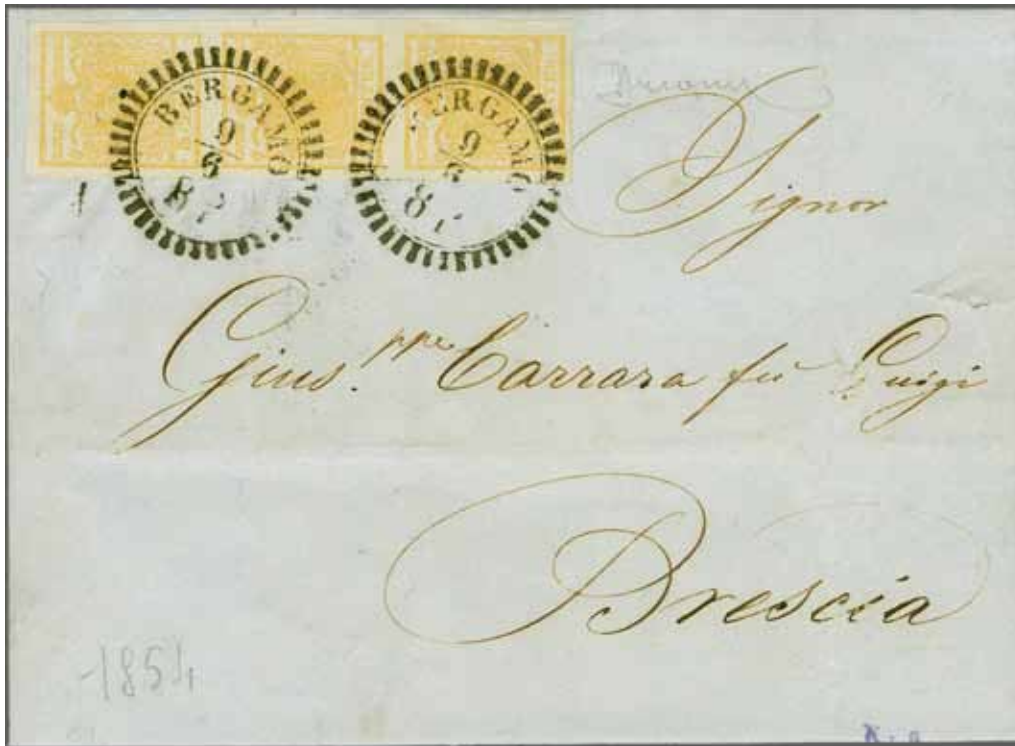 BERGAMO
9
6
BERGAMO
9
6
Signor
Gius.ppe Carrara fu Luigi
Brescia
1854